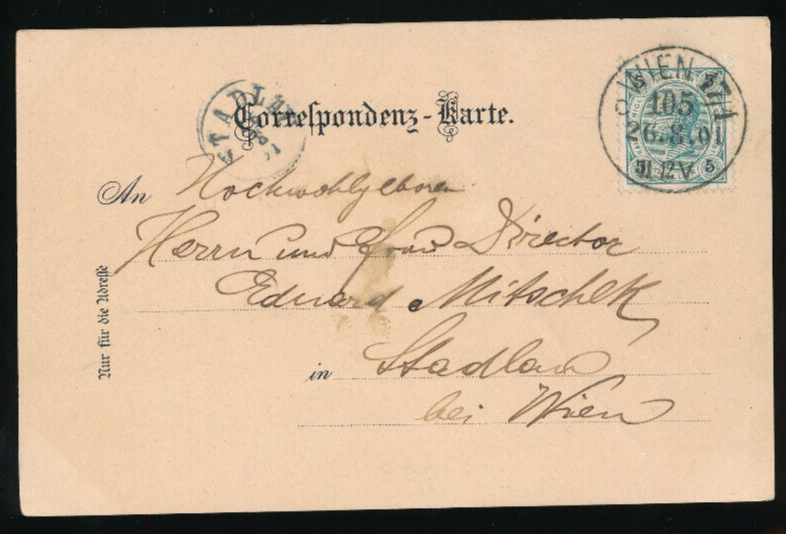 Correspondenz-Karte.
STADLAU
WIEN
105
26.8.01
5
An Hochwohlgeboren
Herrn und Frau Director
Eduard Mitschek
in Stadlau
bei Wien
Nur für die Adresse